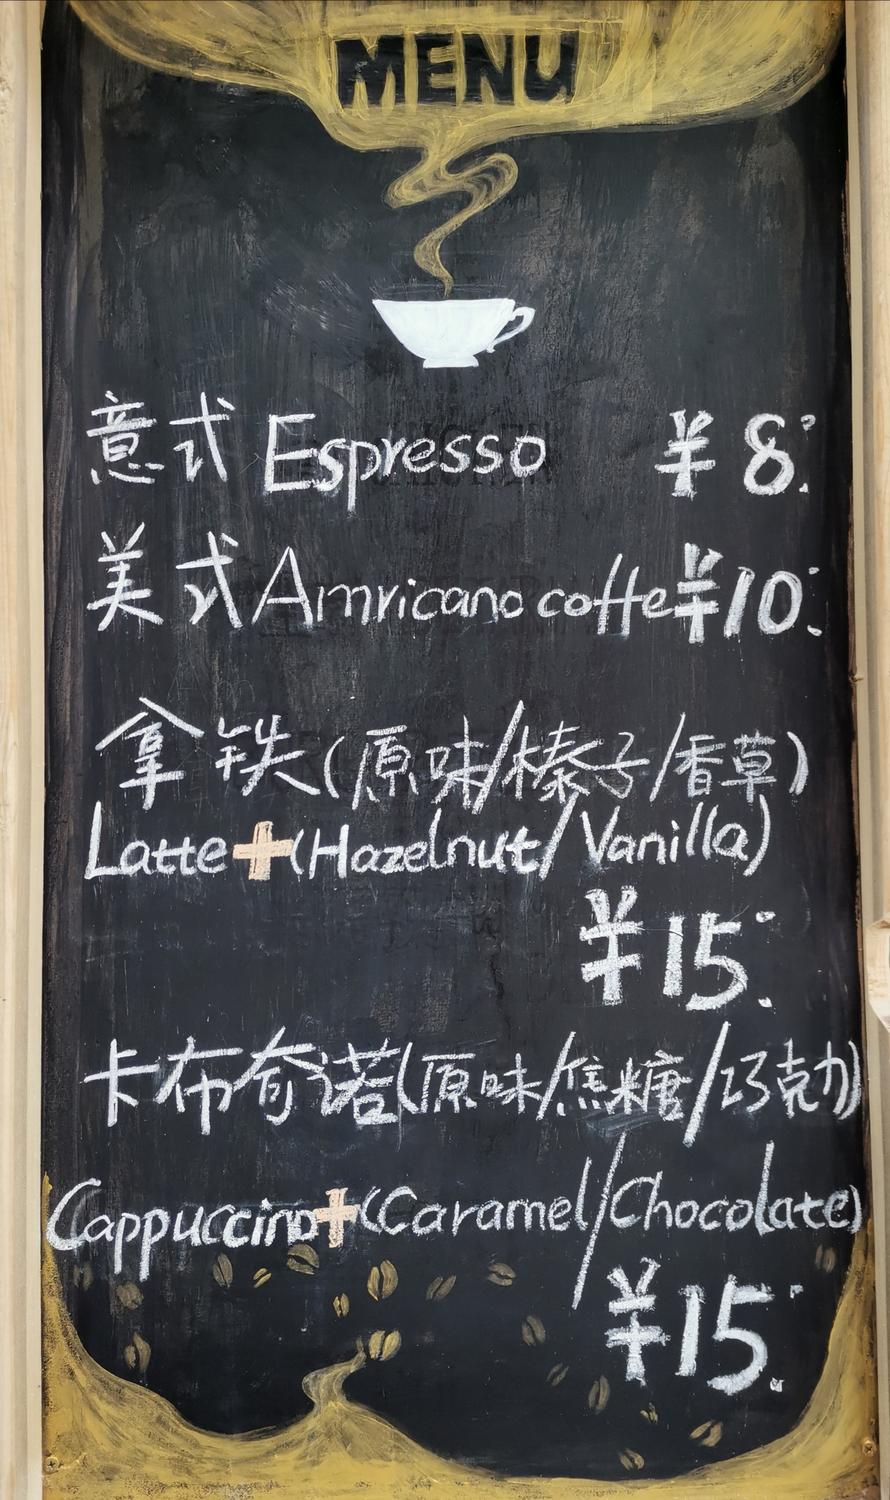 MENU
意式 Espresso ¥ 8:
美式 Amricano coffe ¥10:
拿铁(原味/榛子/香草)
Latte+(Hazelnut/Vanilla)
¥15:
卡布奇诺(原味/焦糖/巧克力)
Cappuccino+(Caramel/Chocolate)
¥15: